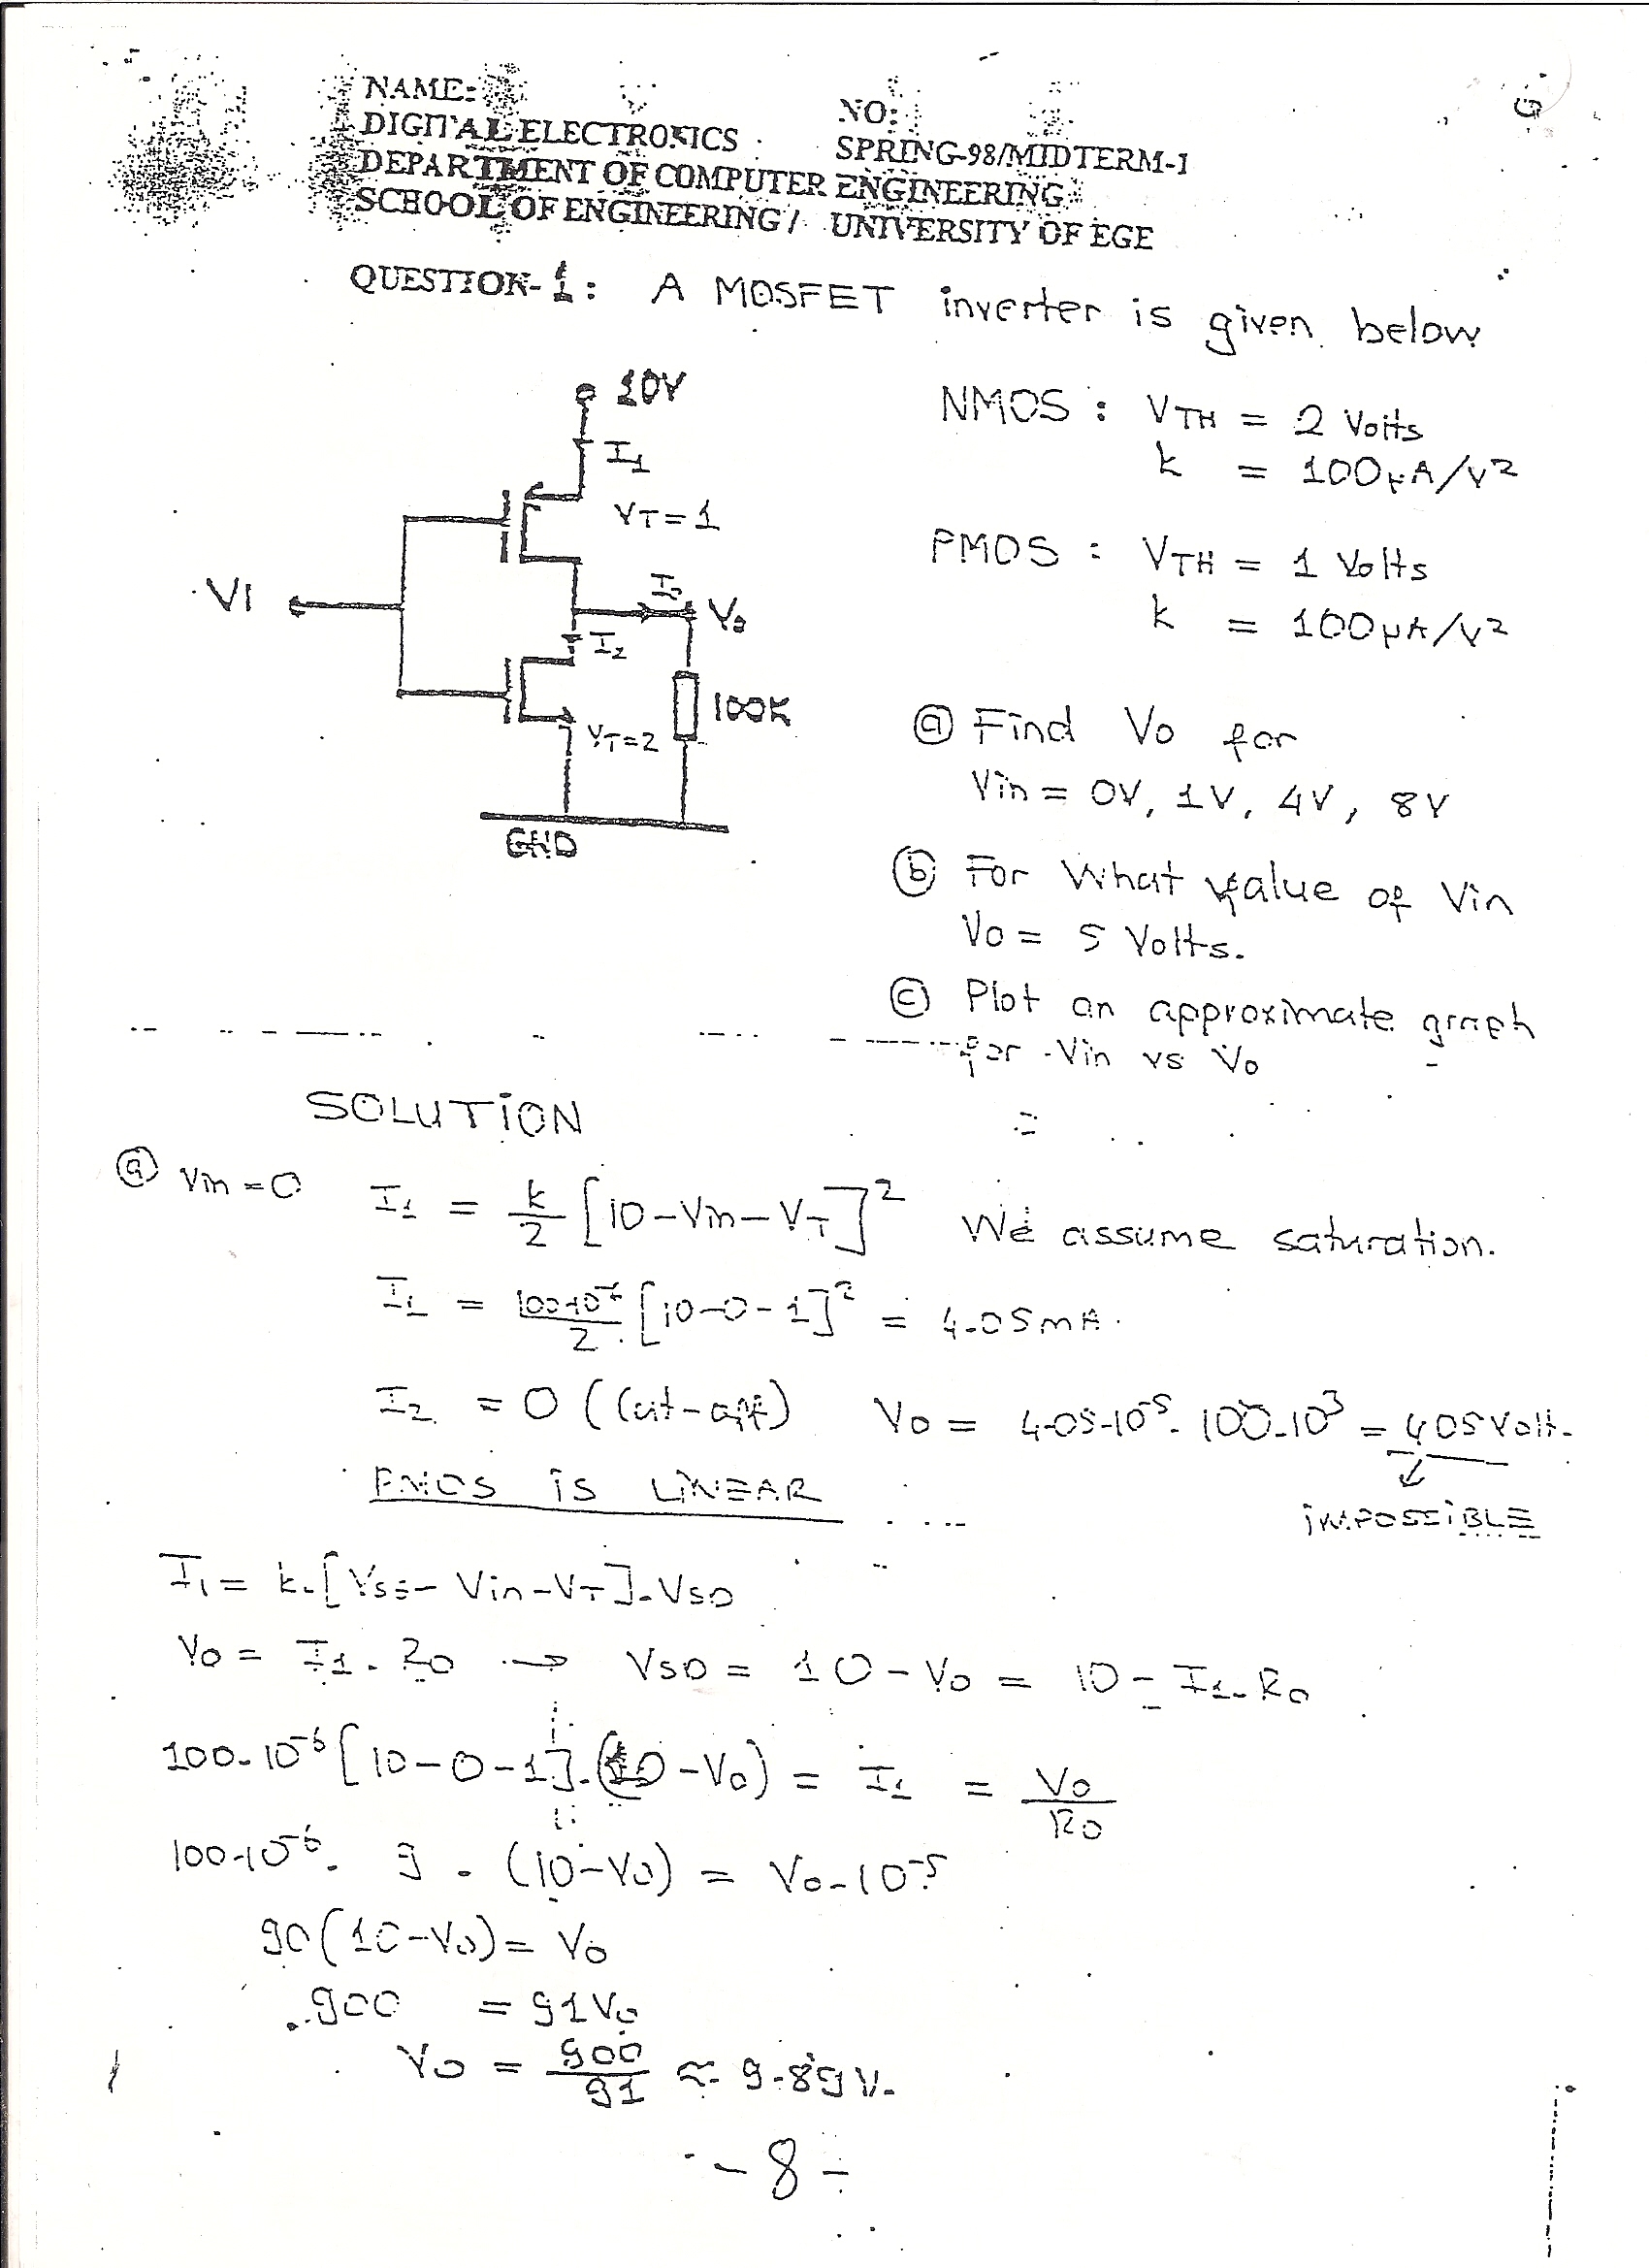 NAME:
NO:
DIGITAL ELECTRONICS
SPRING-98/MIDTERM-1
DEPARTMENT OF COMPUTER ENGINEERING
SCHOOL OF ENGINEERING / UNIVERSITY OF EGE
QUESTION-1: A MOSFET inverter is given below
10V
I1
VT=1
VI
I0
V0
I2
100K
VT=2
GND
NMOS : VTH = 2 Volts
k = 100µA/V²
PMOS : VTH = 1 Volts
k = 100µA/V²
ⓐ Find Vo for
Vin = 0V, 1V, 4V, 8V
ⓑ For What value of Vin
Vo = 5 Volts.
ⓒ Plot an approximate graph
for Vin vs Vo
SOLUTİON
ⓐ Vin=0 I1 = k/2 [10-Vin-VT]² We assume saturation.
I1 = 100·10⁻⁶/2 [10-0-1]² = 4.05mA.
I2 = 0 (Cut-off) Vo = 4.05·10⁻⁵. 100.10³ = 405 Volt.
PMOS İS LİNEAR
İMPOSSİBLE
I1 = k.[VSS- Vin-VT].VSD
Vo = I1. Ro → VSD = 10-Vo = 10- I1.Ro
100.10⁻⁶ [10-0-1].(10-Vo) = I1 = Vo/Ro
100.10⁻⁶. 9 . (10-Vo) = Vo.10⁻⁵
90(10-Vo)= Vo
900 = 91Vo
Vo = 900/91 ≈ 9.89V.
-8-